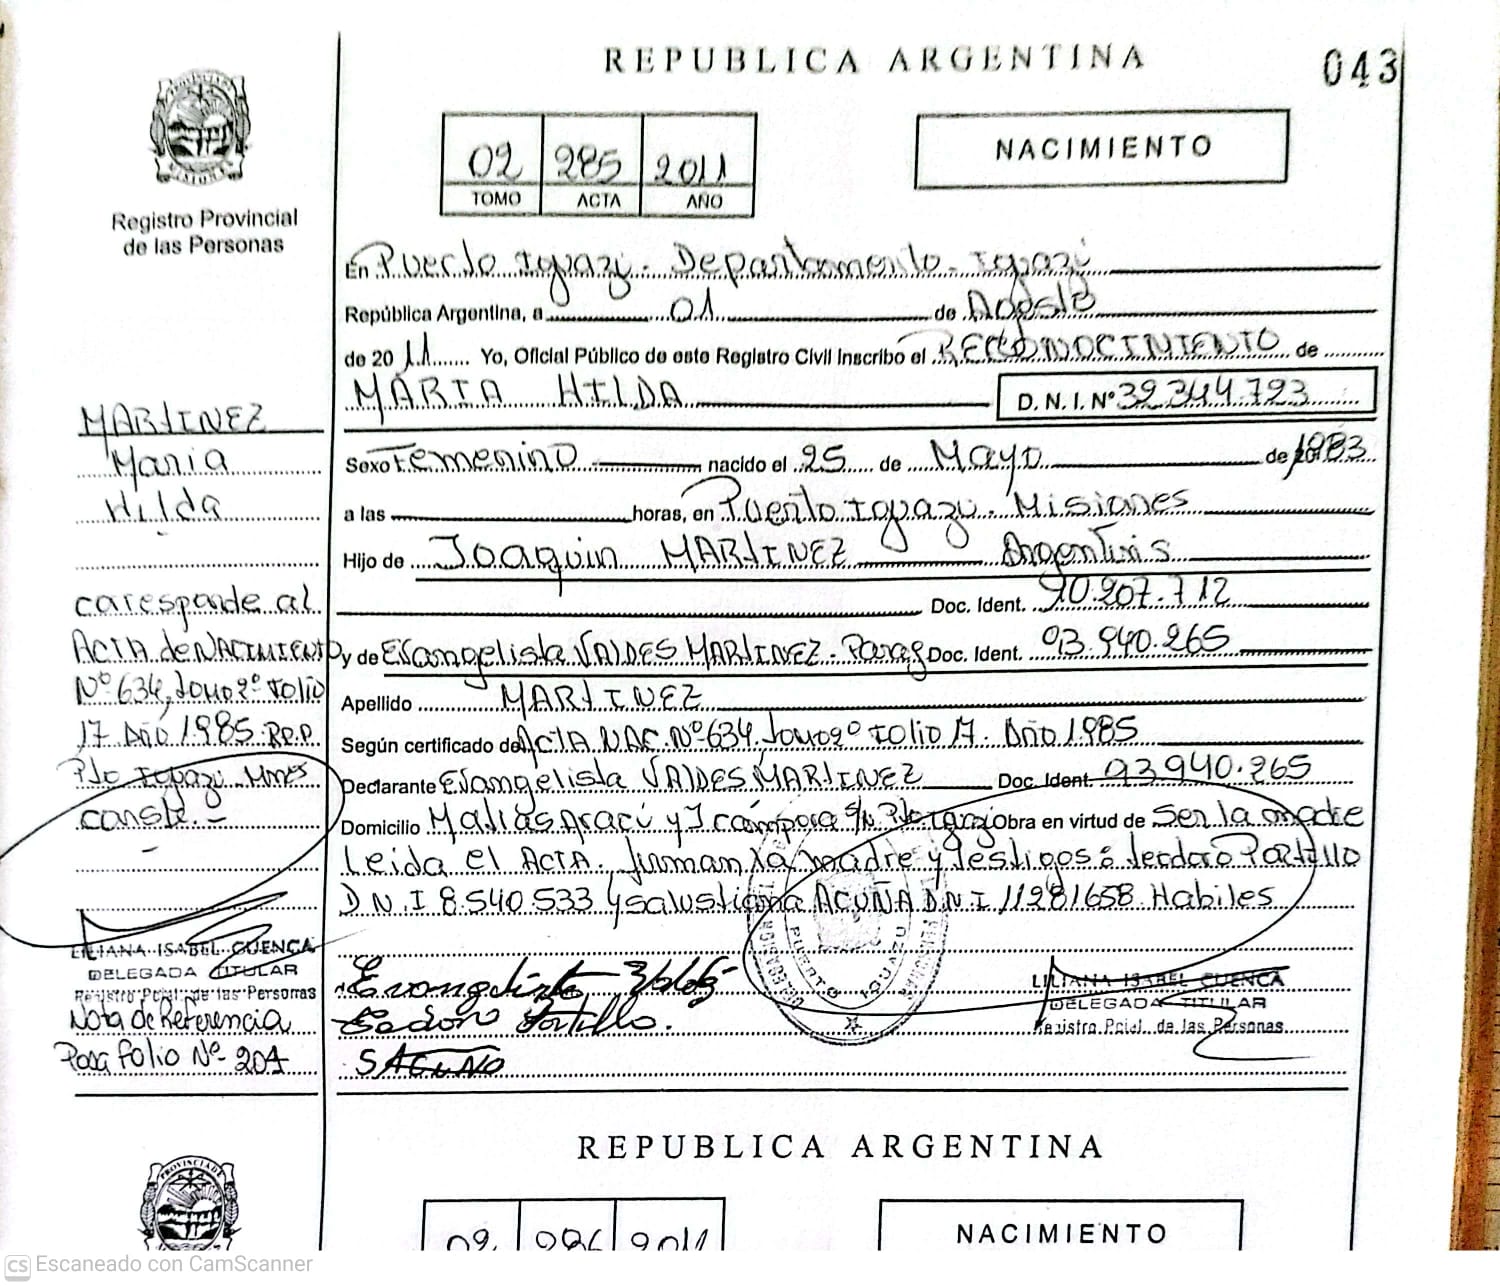 REPUBLICA ARGENTINA
043
02 285 2011
TOMO ACTA AÑO
NACIMIENTO
Registro Provincial
de las Personas
En Puerto Iguazú. Departamento. Iguazú
República Argentina, a 01 de Agosto
de 2011 Yo, Oficial Público de este Registro Civil Inscribo el RECONOCIMIENTO de
MARIA HILDA D.N.I. Nº 32.344.723
Sexo Femenino nacido el 25 de Mayo de 1983
a las horas, en Puerto Iguazú. Misiones
Hijo de Joaquin MARTINEZ
Doc. Ident. 90.207.712
y de Evangelista VALDES MARTINEZ. Parag Doc. Ident. 93.940.265
Apellido MARTINEZ
Según certificado de ACTA NAC. Nº 634. Tomo 2º Folio 17. Año 1985
Declarante Evangelista VALDES MARTINEZ Doc. Ident. 93940.265
Domicilio y S/N Pto Iguazú obra en virtud de Ser la madre
Leida el ACTA. firman la madre y testigos: Teodoro PORTILLO
D.N.I 8.540.533 y Salustiana ACUÑA D.N.I 11281658. Habiles
Evangelista
Teodoro Portillo.
DELEGACION PUERTO IGUAZU
LILIANA ISABEL CUENCA
DELEGADA TITULAR
Registro Pcial. de las Personas
MARTINEZ
Maria
Hilda
coresponde al
ACTA de NACIMIENTO
Nº 634, Tomo 2º Folio
17 Año 1985. R.P.P.
Pto Iguazú. Mnes
conste.-
LILIANA ISABEL CUENCA
DELEGADA TITULAR
Registro Pcial. de las Personas
Nota de Referencia
Pasa folio Nº 204
REPUBLICA ARGENTINA
02 286 2011
NACIMIENTO
PROVINCIA DE
CS Escaneado con CamScanner